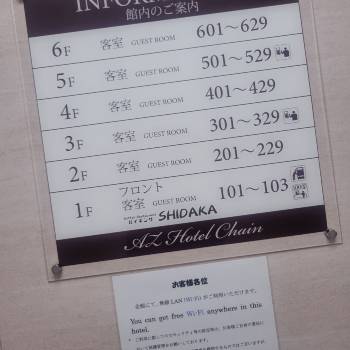 INFORM
館内のご案内
6F 客室 GUEST ROOM 601～629
5F 客室 GUEST ROOM 501～529
4F 客室 GUEST ROOM 401～429
3F 客室 GUEST ROOM 301～329
2F 客室 GUEST ROOM 201～229
フロント
1F 客室 GUEST ROOM 101～103
バイキング SHIDAKA
AZ Hotel Chain
お客様各位
全館にて、無線 LAN（Wi-Fi）がご利用いただけます。
You can get free Wi-Fi anywhere in this
hotel.